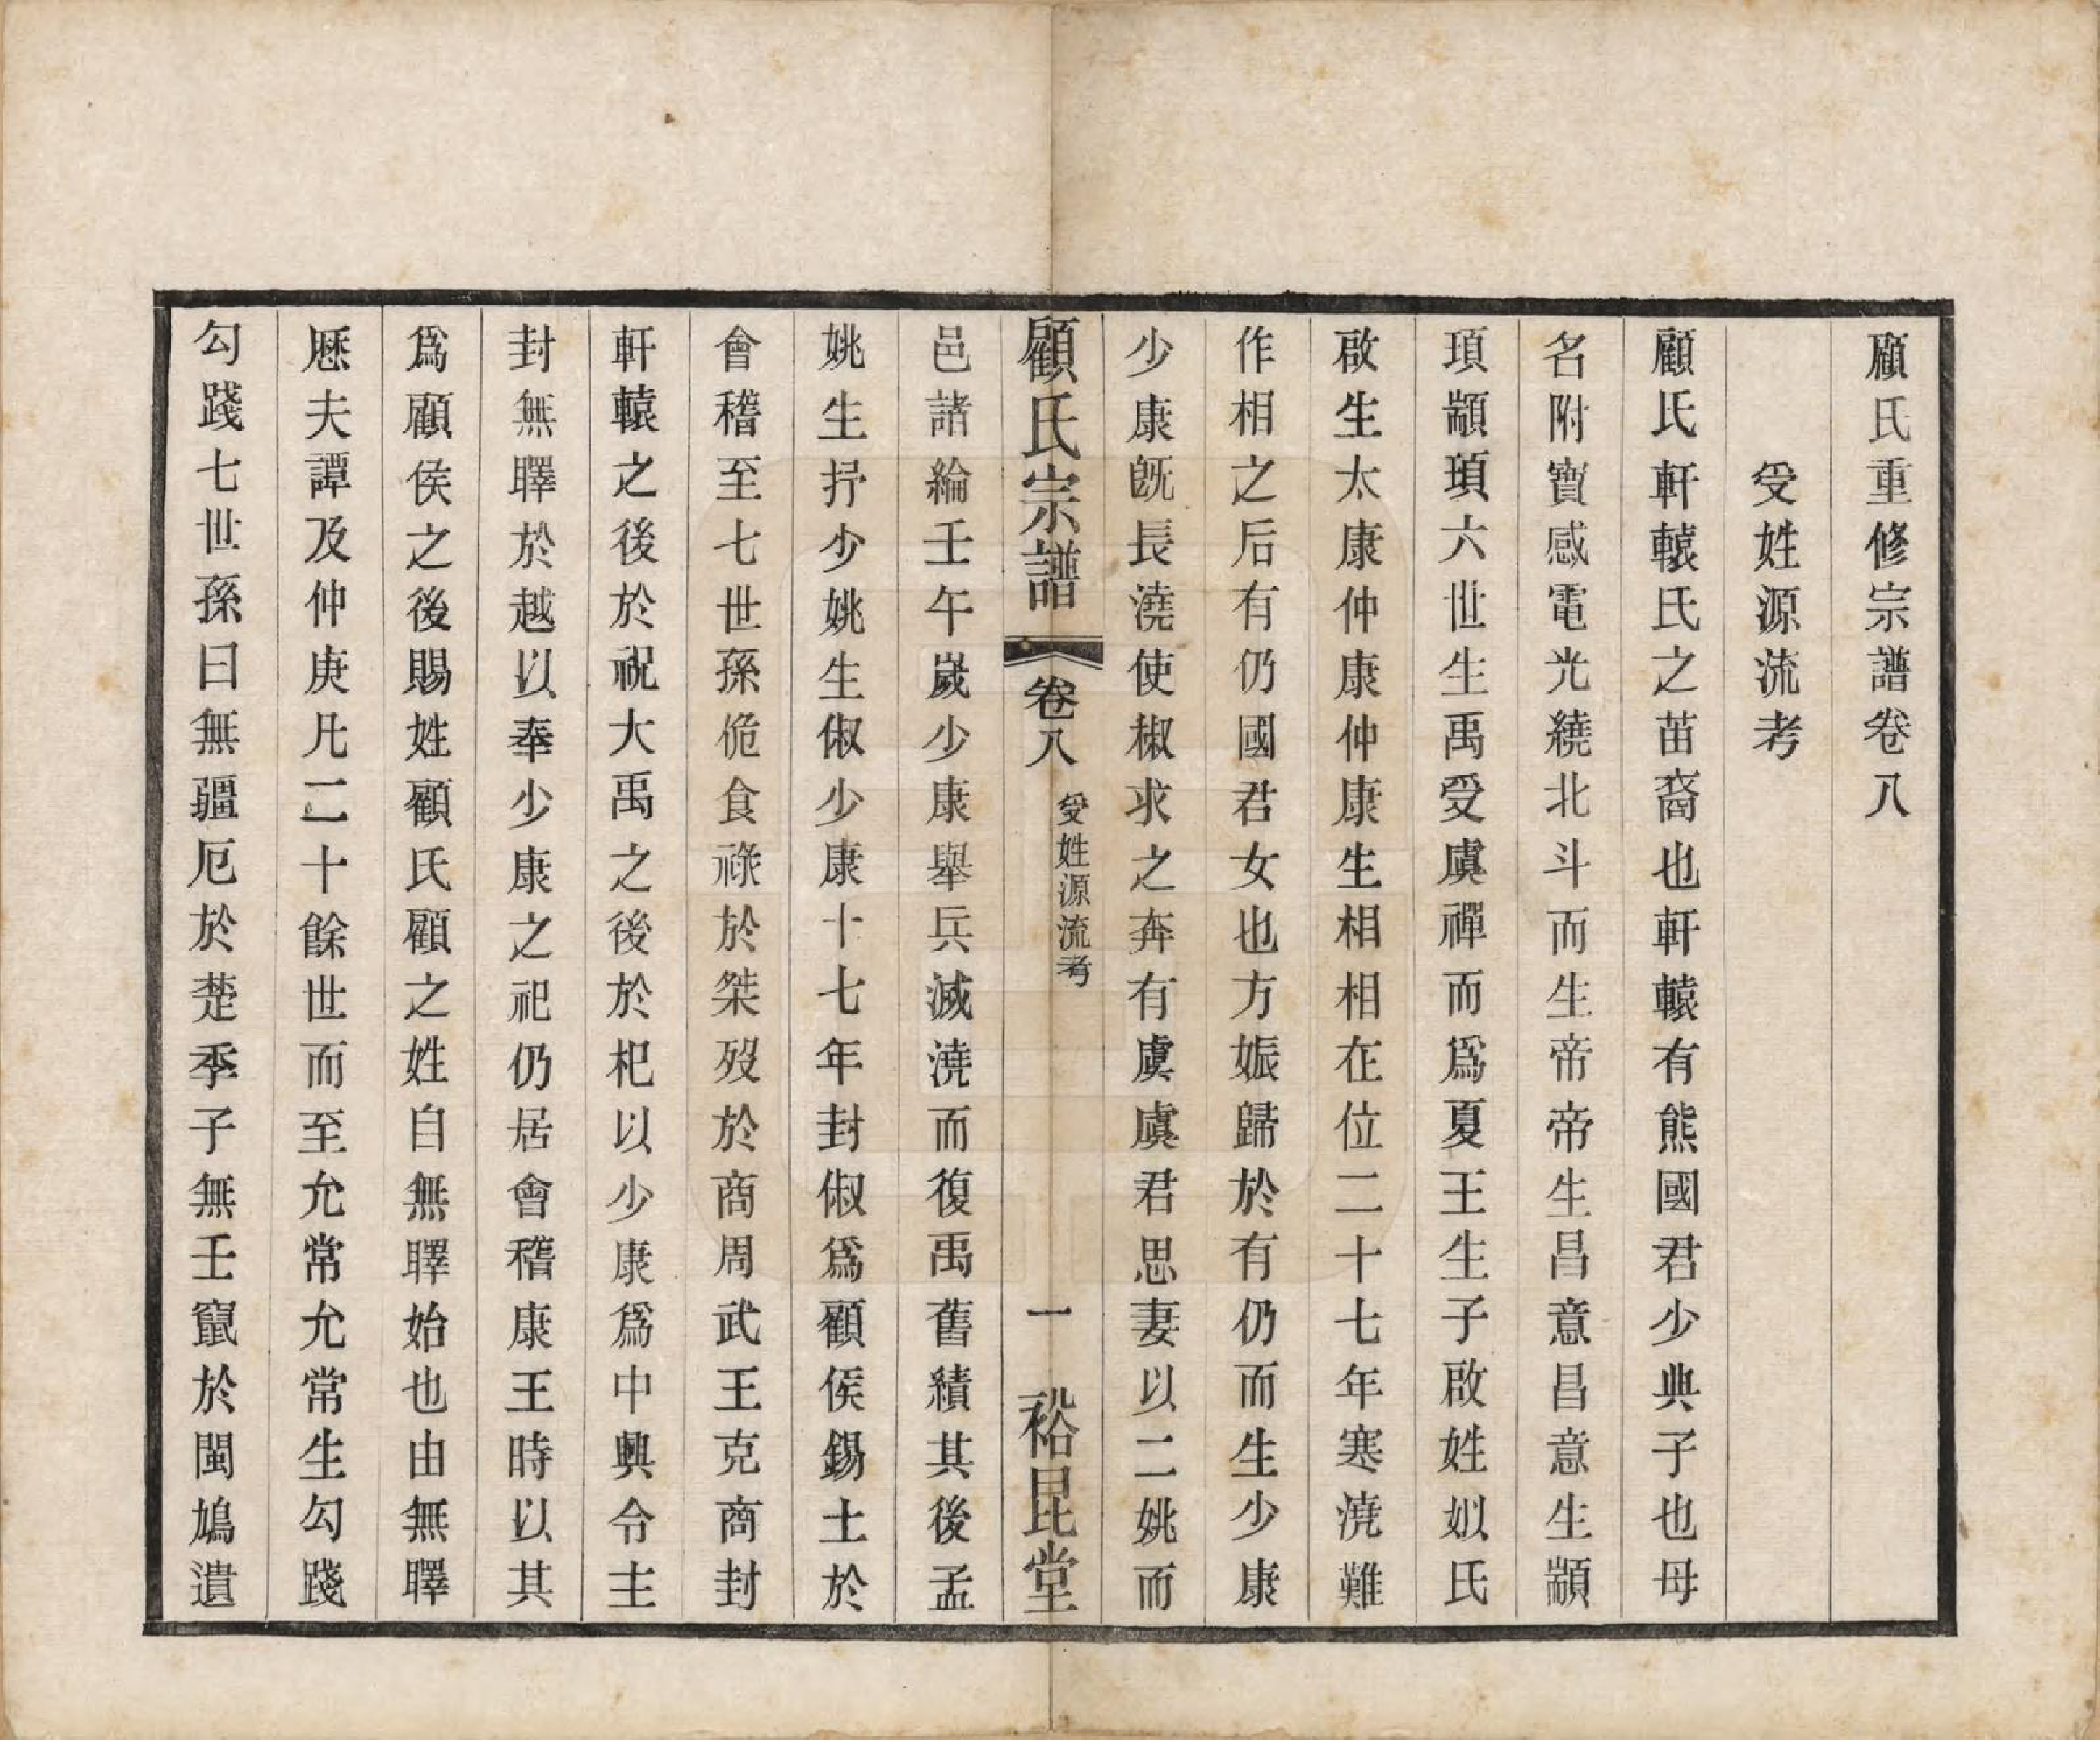 顧氏重修宗譜卷八
受姓源流考
顧氏軒轅氏之苗裔也軒轅有熊國君少典子也母
名附寶感電光繞北斗而生帝帝生昌意昌意生顓
頊顓頊六世生禹受虞禪而爲夏王生子啟姓姒氏
啟生太康仲康仲康生相相在位二十七年寒澆難
作相之后有仍國君女也方娠歸於有仍而生少康
少康旣長澆使椒求之奔有虞虞君思妻以二姚而
顧氏宗譜
卷八
受姓源流考
一
裕昆堂
邑諸綸壬午嵗少康舉兵滅澆而復禹舊績其後孟
姚生抒少姚生俶少康十七年封俶爲顧侯錫土於
會稽至七世孫佹食祿於桀歿於商周武王克商封
軒轅之後於祝大禹之後於杞以少康爲中興令主
封無䎺於越以奉少康之祀仍居會稽康王時以其
爲顧侯之後賜姓顧氏顧之姓自無䎺始也由無䎺
歴夫譚及仲庚凡二十餘世而至允常允常生勾踐
勾踐七世孫曰無疆厄於楚季子無壬竄於閩鳩遺